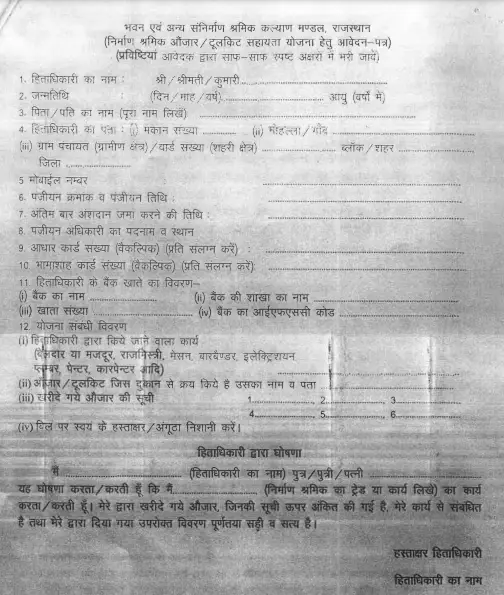 भवन एवं अन्य संनिर्माण श्रमिक कल्याण मण्डल, राजस्थान
(निर्माण श्रमिक औजार/टूलकिट सहायता योजना हेतु आवेदन-पत्र)
(प्रविष्टियां आवेदक द्वारा साफ-साफ स्पष्ट अक्षरों में भरी जायें)
1. हिताधिकारी का नाम : श्री/श्रीमती/कुमारी
2. जन्मतिथि : (दिन/माह/वर्ष) आयु (वर्षों में)
3. पिता/पति का नाम (पूरा नाम लिखें)
4. हिताधिकारी का पता : (i) मकान संख्या (ii) मोहल्ला/गाँव
(iii) ग्राम पंचायत (ग्रामीण क्षेत्र)/वार्ड संख्या (शहरी क्षेत्र) ब्लॉक/शहर
जिला
5 मोबाईल नम्बर
6. पंजीयन क्रमांक व पंजीयन तिथि :
7. अंतिम बार अंशदान जमा करने की तिथि :
8. पंजीयन अधिकारी का पदनाम व स्थान
9. आधार कार्ड संख्या (वैकल्पिक) (प्रति संलग्न करें) :
10. भामाशाह कार्ड संख्या (वैकल्पिक) (प्रति संलग्न करें):
11. हिताधिकारी के बैंक खाते का विवरण-
(i) बैंक का नाम (ii) बैंक की शाखा का नाम
(iii) खाता संख्या (iv) बैंक का आईएफएससी कोड
12. योजना संबंधी विवरण
(i) हिताधिकारी द्वारा किये जाने वाला कार्य
(बेलदार या मजदूर, राजमिस्त्री, मेसन, बारबेण्डर, इलेक्ट्रिशयन,
प्लम्बर, पेन्टर, कारपेन्टर आदि)
(ii) औजार/टूलकिट जिस दुकान से क्रय किये है उसका नाम व पता
(iii) खरीदे गये औजार की सूची 1. 2. 3.
4. 5. 6.
(iv) बिल पर स्वयं के हस्ताक्षर/अंगूठा निशानी करें।
हिताधिकारी द्वारा घोषणा
मैं (हिताधिकारी का नाम) पुत्र/पुत्री/पत्नी
यह घोषणा करता/करती हूँ कि मैं (निर्माण श्रमिक का ट्रेड या कार्य लिखें) का कार्य
करता/करती हूँ। मेरे द्वारा खरीदे गये औजार, जिनकी सूची ऊपर अंकित की गई है, मेरे कार्य से संबंधित
है तथा मेरे द्वारा दिया गया उपरोक्त विवरण पूर्णतया सही व सत्य है।
हस्ताक्षर हिताधिकारी
हिताधिकारी का नाम